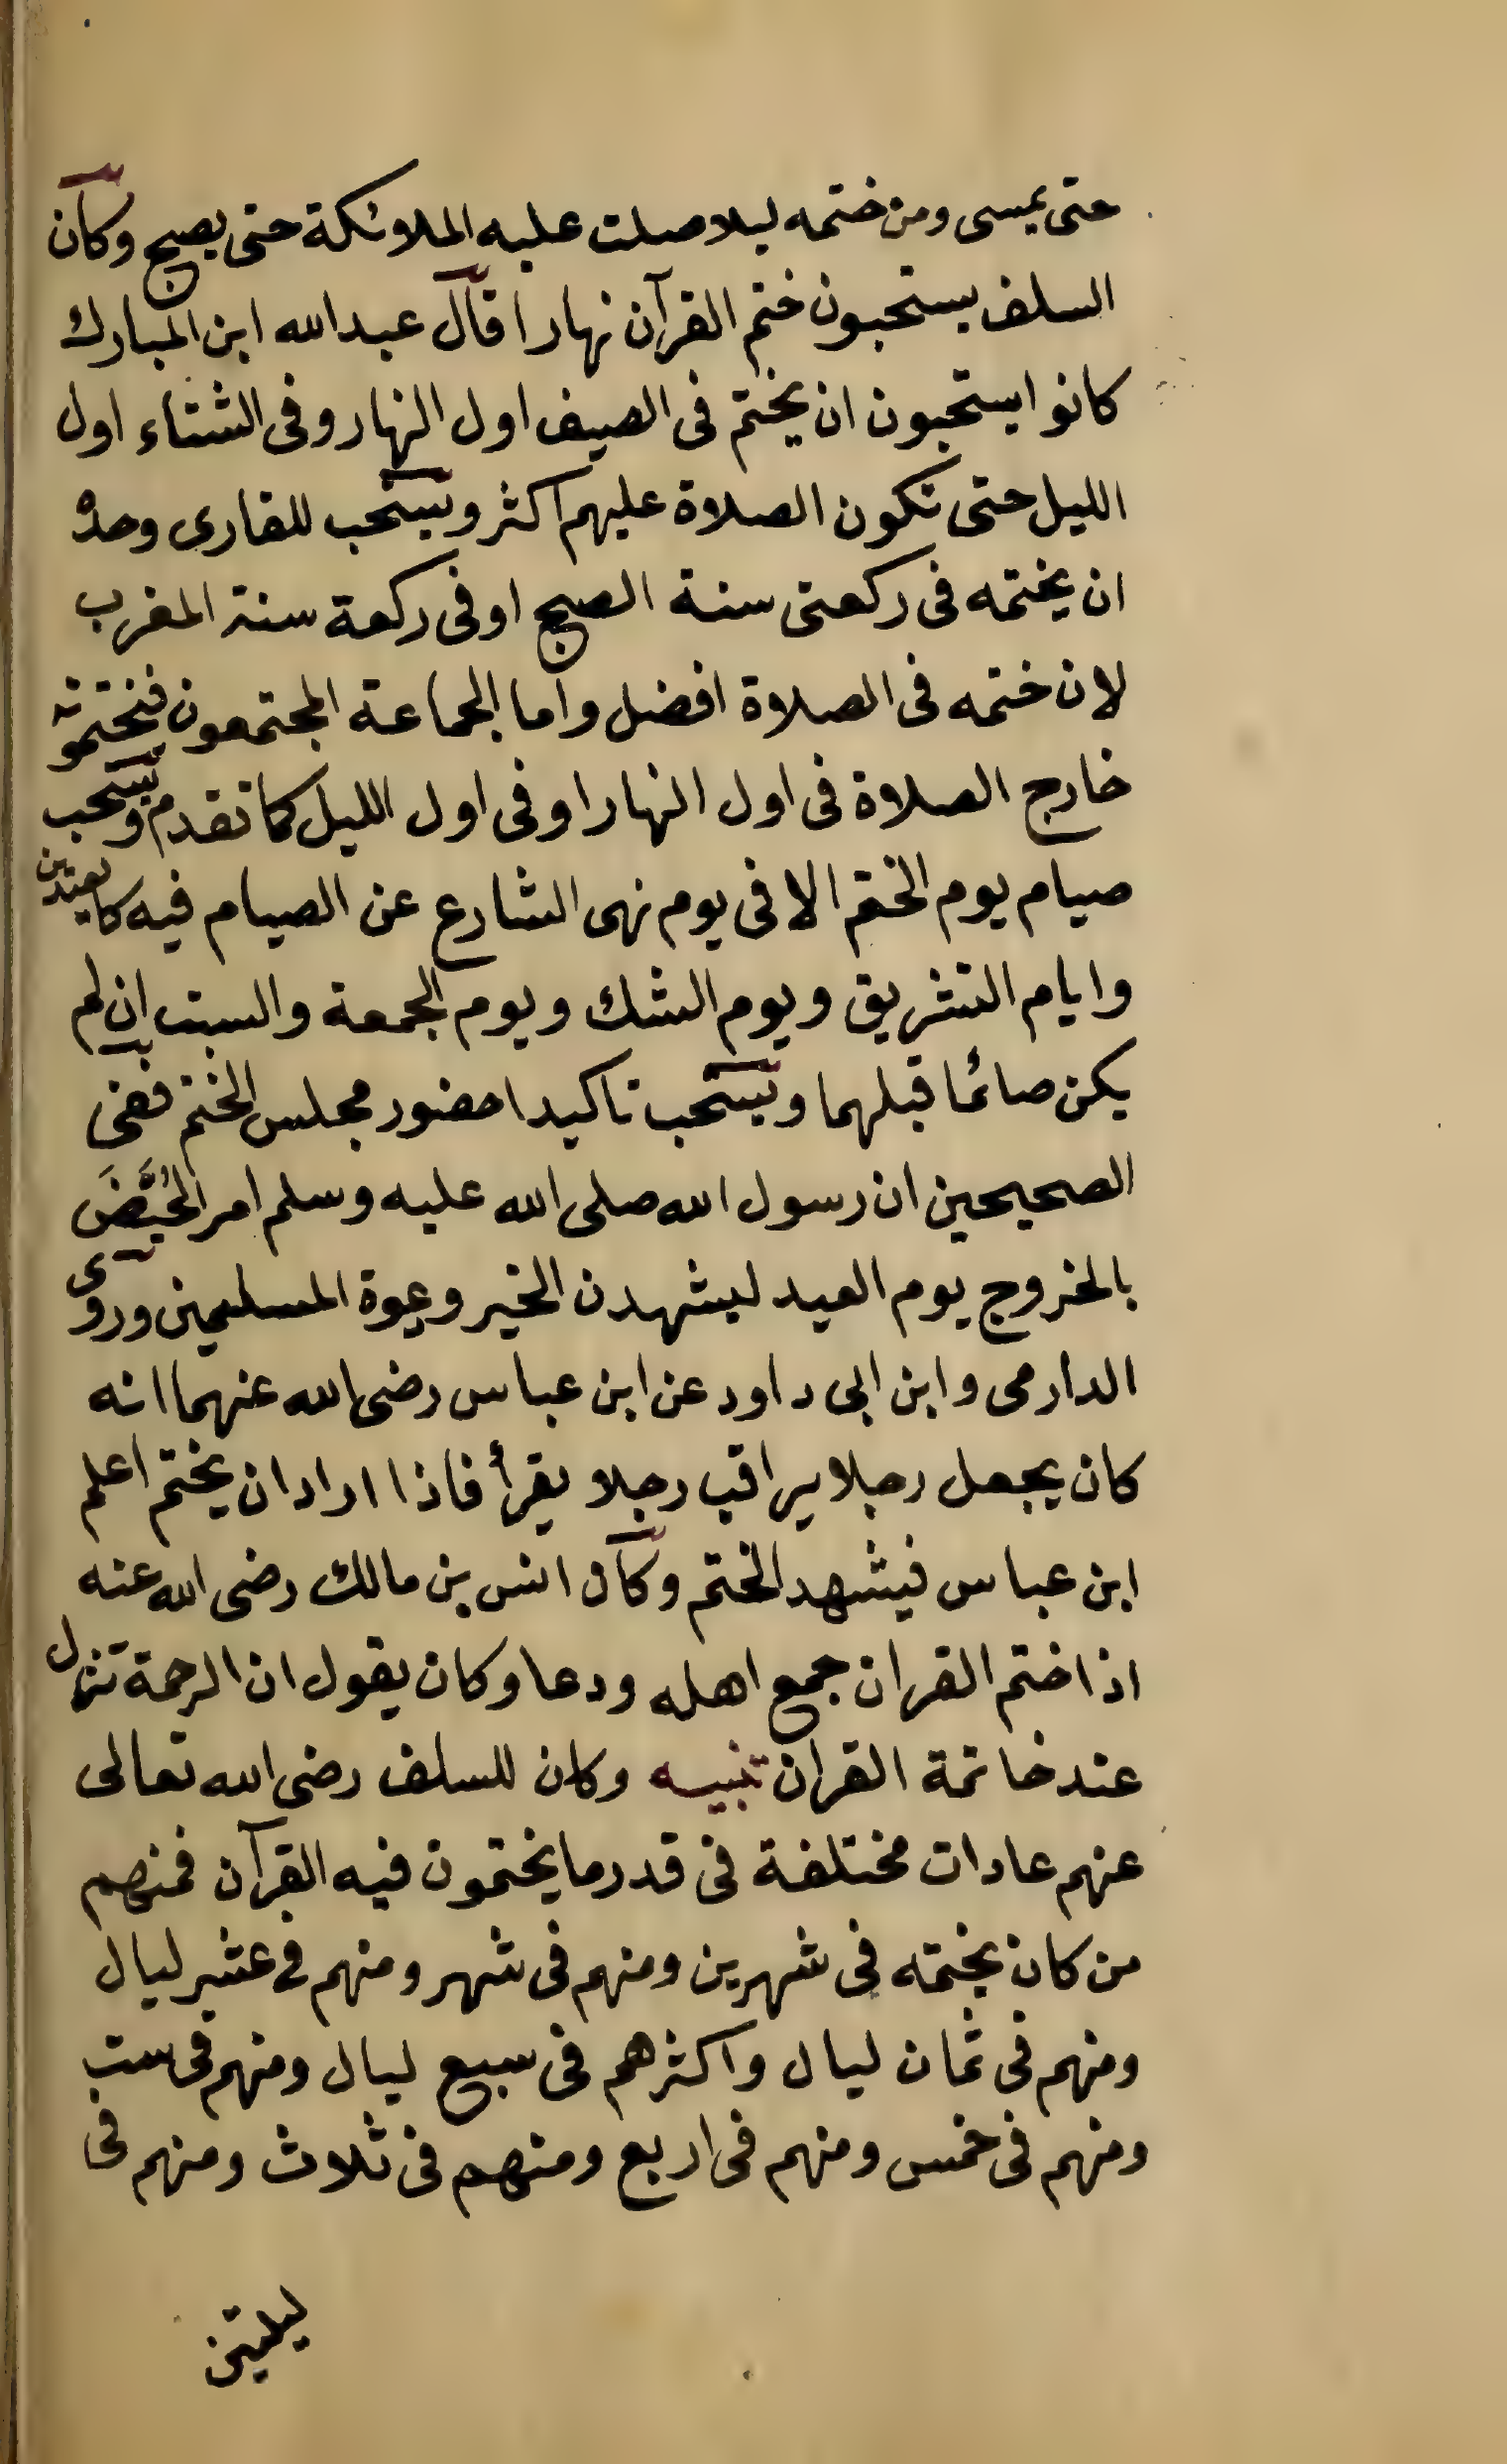 حتى يمسى ومن ختمه ليلا صلت عليه الملائكة حتى يصبح وكان
السلف يستحبون ختم القرآن نهارا قال عبد الله ابن المبارك
كانوا يستحبون ان يختم فى الصيف اول النهار وفى الشتاء اول
الليل حتى تكون الصلاة عليهم اكثر ويستحب للقارى وحده
ان يختمه فى ركعتى سنة الصبح او فى ركعة سنة المغرب
لان ختمه فى الصلاة افضل واما الجماعة المجتمعون فختمهم
خارج الصلاة فى اول النهار او فى اول الليل كما تقدم ويستحب
صيام يوم الختم الا فى يوم نهى الشارع عن الصيام فيه كالعيدين
وايام التشريق ويوم الشك ويوم الجمعة والسبت ان لم
يكن صائما قبلهما ويستحب تاكيدا حضور مجلس الختم ففى
الصحيحين ان رسول الله صلى الله عليه وسلم امر الحُيَّضَ
بالخروج يوم العيد ليشهدن الخير ودعوة المسلمين وروى
الدارمى وابن ابى داود عن ابن عباس رضى الله عنهما انه
كان يجعل رجلا يراقب رجلا يقرأ فاذا اراد ان يختم اعلم
ابن عباس فيشهد الختم وكان انس بن مالك رضى الله عنه
اذا ختم القران جمع اهله ودعا وكان يقول ان الرحمة تنزل
عند خاتمة القران تنبيه وكان للسلف رضى الله تعالى
عنهم عادات مختلفة فى قدر ما يختمون فيه القرآن فمنهم
من كان يختمه فى شهرين ومنهم فى شهر ومنهم فى عشر ليال
ومنهم فى ثمان ليال واكثرهم فى سبع ليال ومنهم فى ست
ومنهم فى خمس ومنهم فى اربع ومنهم فى ثلاث ومنهم فى
ليلتين